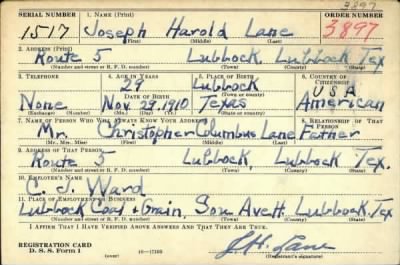 3897
SERIAL NUMBER 1. NAME (Print) ORDER NUMBER
1517 Joseph Harold Lane 3897
(First) (Middle) (Last)
2. ADDRESS (Print)
Route 5 Lubbock, Lubbock Tex
(Number and street or R. F. D. number) (Town) (County) (State)
3. TELEPHONE 4. AGE IN YEARS 5. PLACE OF BIRTH 6. COUNTRY OF CITIZENSHIP
29 Lubbock USA
DATE OF BIRTH (Town or county)
None Nov. 29, 1910 Texas American
(Exchange) (Number) (Mo.) (Day) (Yr.) (State or country)
7. NAME OF PERSON WHO WILL ALWAYS KNOW YOUR ADDRESS 8. RELATIONSHIP OF THAT PERSON
Mr. Christopher Columbus Lane Father
(Mr., Mrs., Miss) (First) (Middle) (Last)
9. ADDRESS OF THAT PERSON
Route 5 Lubbock, Lubbock Tex.
(Number and street or R. F. D. number) (Town) (County) (State)
10. EMPLOYER'S NAME
C. J. Ward
11. PLACE OF EMPLOYMENT OR BUSINESS
Lubbock Coal & Grain, Sou Ave H, Lubbock, Tex
(Number and street or R. F. D. number) (Town) (County) (State)
I AFFIRM THAT I HAVE VERIFIED ABOVE ANSWERS AND THAT THEY ARE TRUE.
REGISTRATION CARD
D. S. S. Form 1 (over) 16—17105 J. H. Lane
(Registrant's signature)